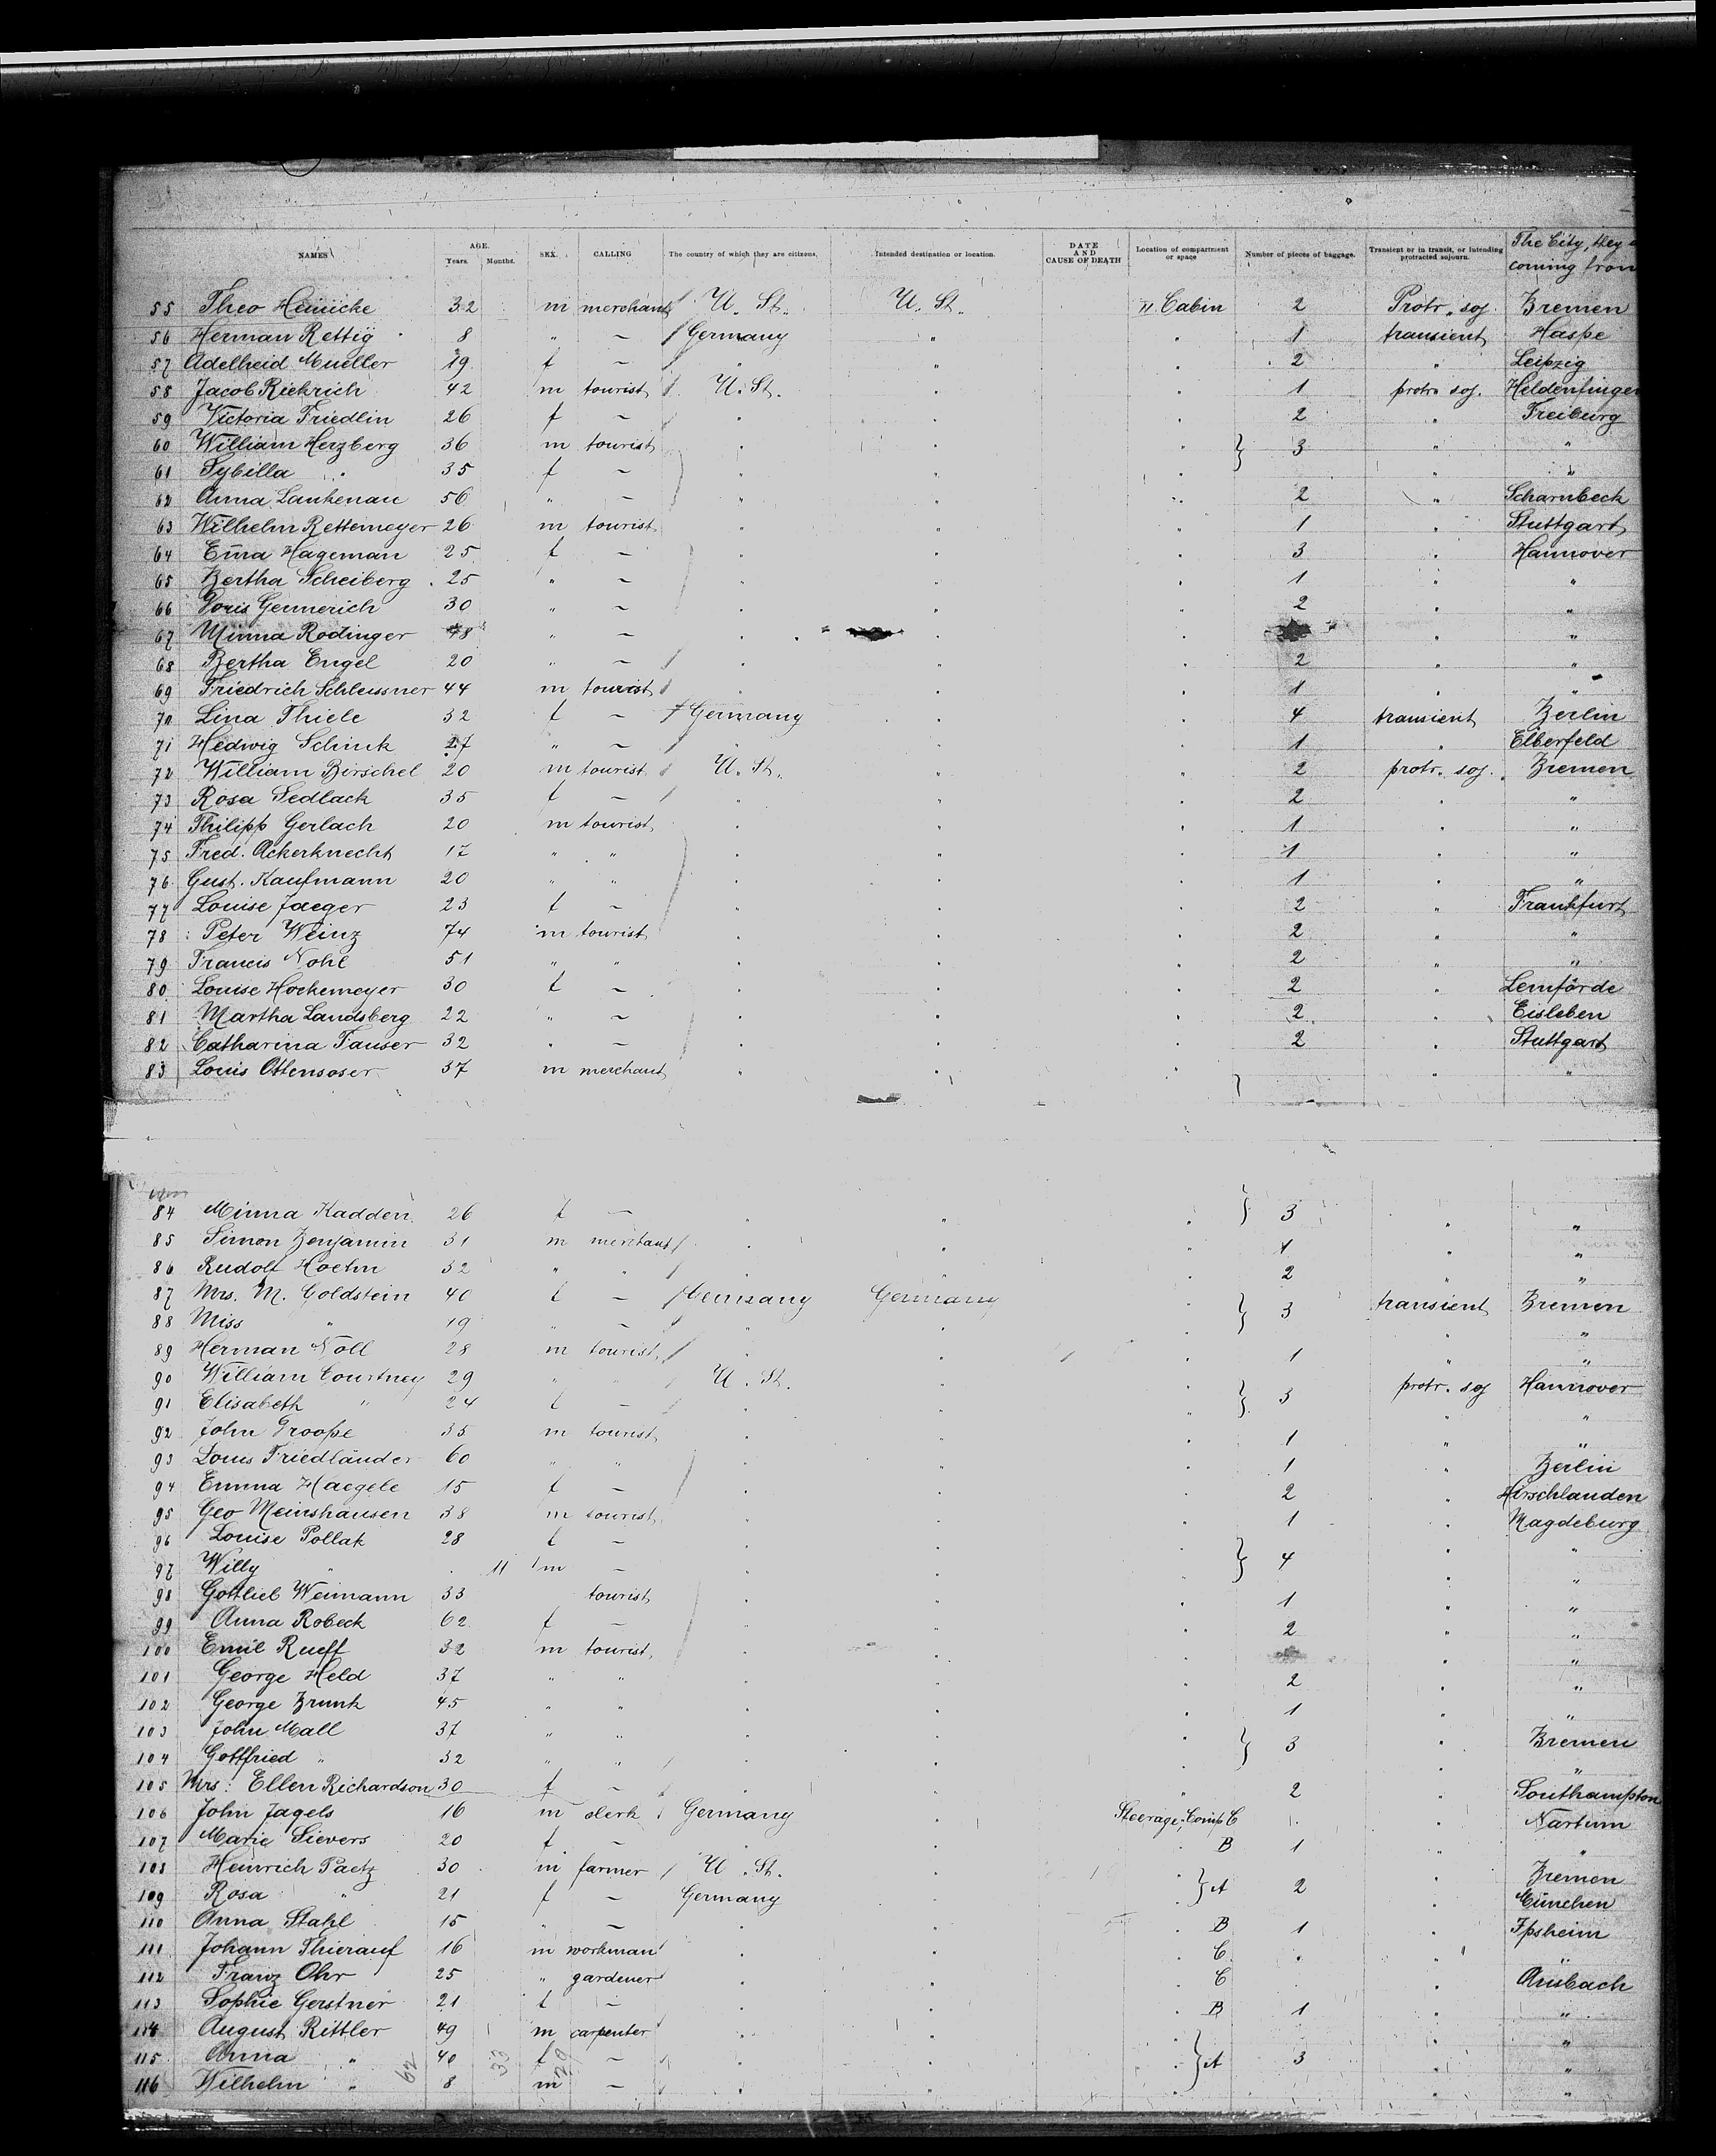 NAMES AGE. Years. Months. SEX. CALLING The country of which they are citizens. Intended destination or location. DATE AND CAUSE OF DEATH Location of compartment or space Number of pieces of baggage. Transient or in transit, or intending protracted sojourn. The City, they coming from
55 Theo Heinicke 32 m merchant U. St. U. St. II Cabin 2 Protr. soj. Bremen
56 Herman Rettig 8 " ~ Germany " " 1 transient Haspe
57 Adelheid Mueller 19 f ~ " " " 2 " Leipzig
58 Jacob Rickrich 42 m tourist U. St. " " 1 protr. soj. Heldenfingen
59 Victoria Friedlin 26 f ~ " " " 2 " Freiburg
60 William Herzberg 36 m tourist " " " } 3 " "
61 Sybilla " 35 f ~ " " " " "
62 Anna Lankenau 56 " ~ " " " 2 " Scharnbeck
63 Wilhelm Rettemeyer 26 m tourist " " " 1 " Stuttgart
64 Em̄a Hageman 25 f ~ " " " 3 " Hannover
65 Bertha Scheiberg 25 " ~ " " " 1 " "
66 Doris Gennerich 30 " ~ " " " 2 " "
67 Minna Rodinger 48 " ~ " " " " "
68 Bertha Engel 20 " ~ " " " 2 " "
69 Friedrich Schleissner 44 m tourist " " " 1 " "
70 Lina Thiele 32 f ~ Germany " " 4 transient Berlin
71 Hedwig Schink 27 " ~ " " " 1 " Elberfeld
72 William Birschel 20 m tourist U. St. " " 2 protr. soj. Bremen
73 Rosa Sedlack 35 f ~ " " " 2 " "
74 Philipp Gerlach 20 m tourist " " " 1 " "
75 Fred. Ackerknecht 17 " " " " " 1 " "
76 Gust. Kaufmann 20 " " " " " 1 " "
77 Louise Jaeger 23 f ~ " " " 2 " Frankfurt
78 Peter Weinz 74 m tourist " " " 2 " "
79 Francis Nohl 51 " " " " " 2 " "
80 Louise Hockemeyer 30 f ~ " " " 2 " Lemförde
81 Martha Landsberg 22 " ~ " " " 2 " Eisleben
82 Catharina Fauser 32 " ~ " " " 2 " Stuttgart
83 Louis Ottensoser 37 m merchant " " " } " "
84 Minna Kadden 26 f ~ " " " } 3 " "
85 Simon Benjamin 31 m merchant " " " 1 " "
86 Rudolf Hoehn 32 " " " " " 2 " "
87 Mrs. M. Goldstein 40 f ~ Germany Germany " } 3 transient Bremen
88 Miss " 19 " ~ " " " " "
89 Herman Noll 28 m tourist " " " 1 " "
90 William Courtney 29 " " U. St. " " } 3 protr. soj Hannover
91 Elisabeth " 24 f ~ " " " " "
92 John Troope 35 m tourist " " " 1 " "
93 Louis Friedländer 60 " " " " " 1 " Berlin
94 Emma Haegele 15 f ~ " " " 2 " Hirschlanden
95 Geo Meinshausen 38 m tourist " " " 1 " Magdeburg
96 Louise Pollak 28 f ~ " " " } 4 " "
97 Willy " 11 m ~ " " " " "
98 Gottlieb Weimann 33 tourist " " " 1 " "
99 Anna Robeck 62 f ~ " " " 2 " "
100 Emil Rueff 32 m tourist " " " " "
101 George Held 37 " " " " " 2 " "
102 George Brunk 45 " " " " " 1 " "
103 John Mall 37 " " " " " } 3 " Bremen
104 Gottfried " 32 " " " " " " "
105 Mrs. Ellen Richardson 30 f ~ " " " 2 " Southampton
106 John Jagels 16 m clerk Germany " Steerage, Comp. C . " Nartum
107 Marie Sievers 20 f ~ " " " B 1 " "
108 Heinrich Paetz 30 m farmer U. St. " " } A 2 " Bremen
109 Rosa " 21 f ~ Germany " " München
110 Anna Stahl 15 " ~ " " " B 1 " Ipsheim
111 Johann Thierauf 16 m workman " " " C . " "
112 Franz Ohr 25 " gardener " " " C . " Ansbach
113 Sophie Gerstner 21 f ~ " " " B 1 " "
114 August Rittler 49 m carpenter " " " } A 3 " "
115 Anna " 40 f ~ " " " " "
116 Wilhelm " 8 m ~ " " " " "
62 33 29